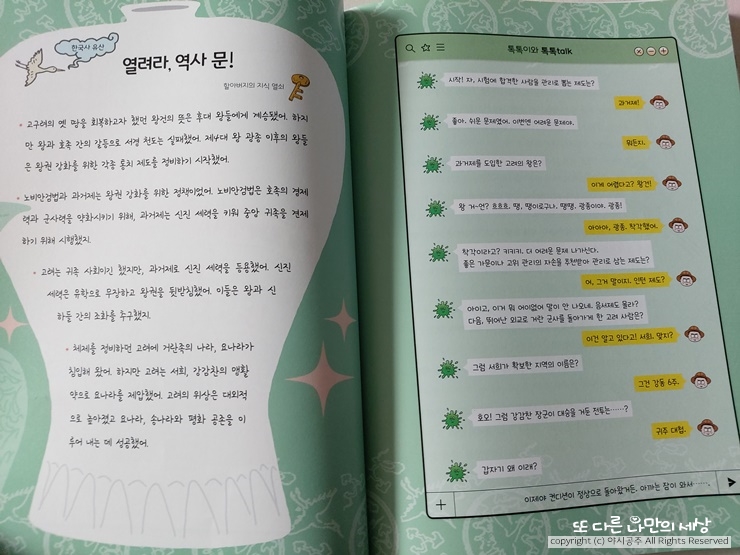 한국사 유산
열려라, 역사 문!
할아버지의 지식 열쇠
고구려의 옛 땅을 회복하고자 했던 왕건의 뜻은 후대 왕들에게 계승됐어. 하지
만 왕과 호족 간의 갈등으로 서경 천도는 실패했어. 제4대 왕 광종 이후의 왕들
은 왕권 강화를 위한 각종 통치 제도를 정비하기 시작했어.
노비안검법과 과거제는 왕권 강화를 위한 정책이었어. 노비안검법은 호족의 경제
력과 군사력을 약화시키기 위해, 과거제는 신진 세력을 키워 중앙 귀족을 견제
하기 위해 시행했지.
고려는 귀족 사회이긴 했지만, 과거제로 신진 세력을 등용했어. 신진
세력은 유학으로 무장하고 왕권을 뒷받침했어. 이들은 왕과 신
하들 간의 조화를 추구했지.
체제를 정비하던 고려에 거란족의 나라, 요나라가
침입해 왔어. 하지만 고려는 서희, 강감찬의 맹활
약으로 요나라를 제압했어. 고려의 위상은 대외적
으로 높아졌고 요나라, 송나라와 평화 공존을 이
루어 내는 데 성공했어.
톡톡이와 톡톡talk
시작! 자, 시험에 합격한 사람을 관리로 뽑는 제도는?
과거제!
좋아. 쉬운 문제였어. 이번엔 어려운 문제야.
뭐든지.
과거제를 도입한 고려의 왕은?
이게 어렵다고? 왕건!
왕 거-언? 흐흐흐. 땡, 땡이로구나. 땡땡. 광종이야. 광종!
아아아, 광종. 착각했어.
착각이라고? 키키키. 더 어려운 문제 나가신다.
좋은 가문이나 고위 관리의 자손을 추천받아 관리로 삼는 제도는?
어, 그거 말이지. 인턴 제도?
아이고, 이거 뭐 어이없어 말이 안 나오네. 음서제도 몰라?
다음, 뛰어난 외교로 거란 군사를 돌아가게 한 고려 사람은?
이건 알고 있다고! 서희. 맞지?
그럼 서희가 확보한 지역의 이름은?
그건 강동 6주.
호오! 그럼 강감찬 장군이 대승을 거둔 전투는……?
귀주 대첩.
갑자기 왜 이래?
이제야 컨디션이 정상으로 돌아왔거든. 아까는 잠이 와서…….
또 다른 나만의 세상
copyright (c) 야시공주 All Rights Reserved